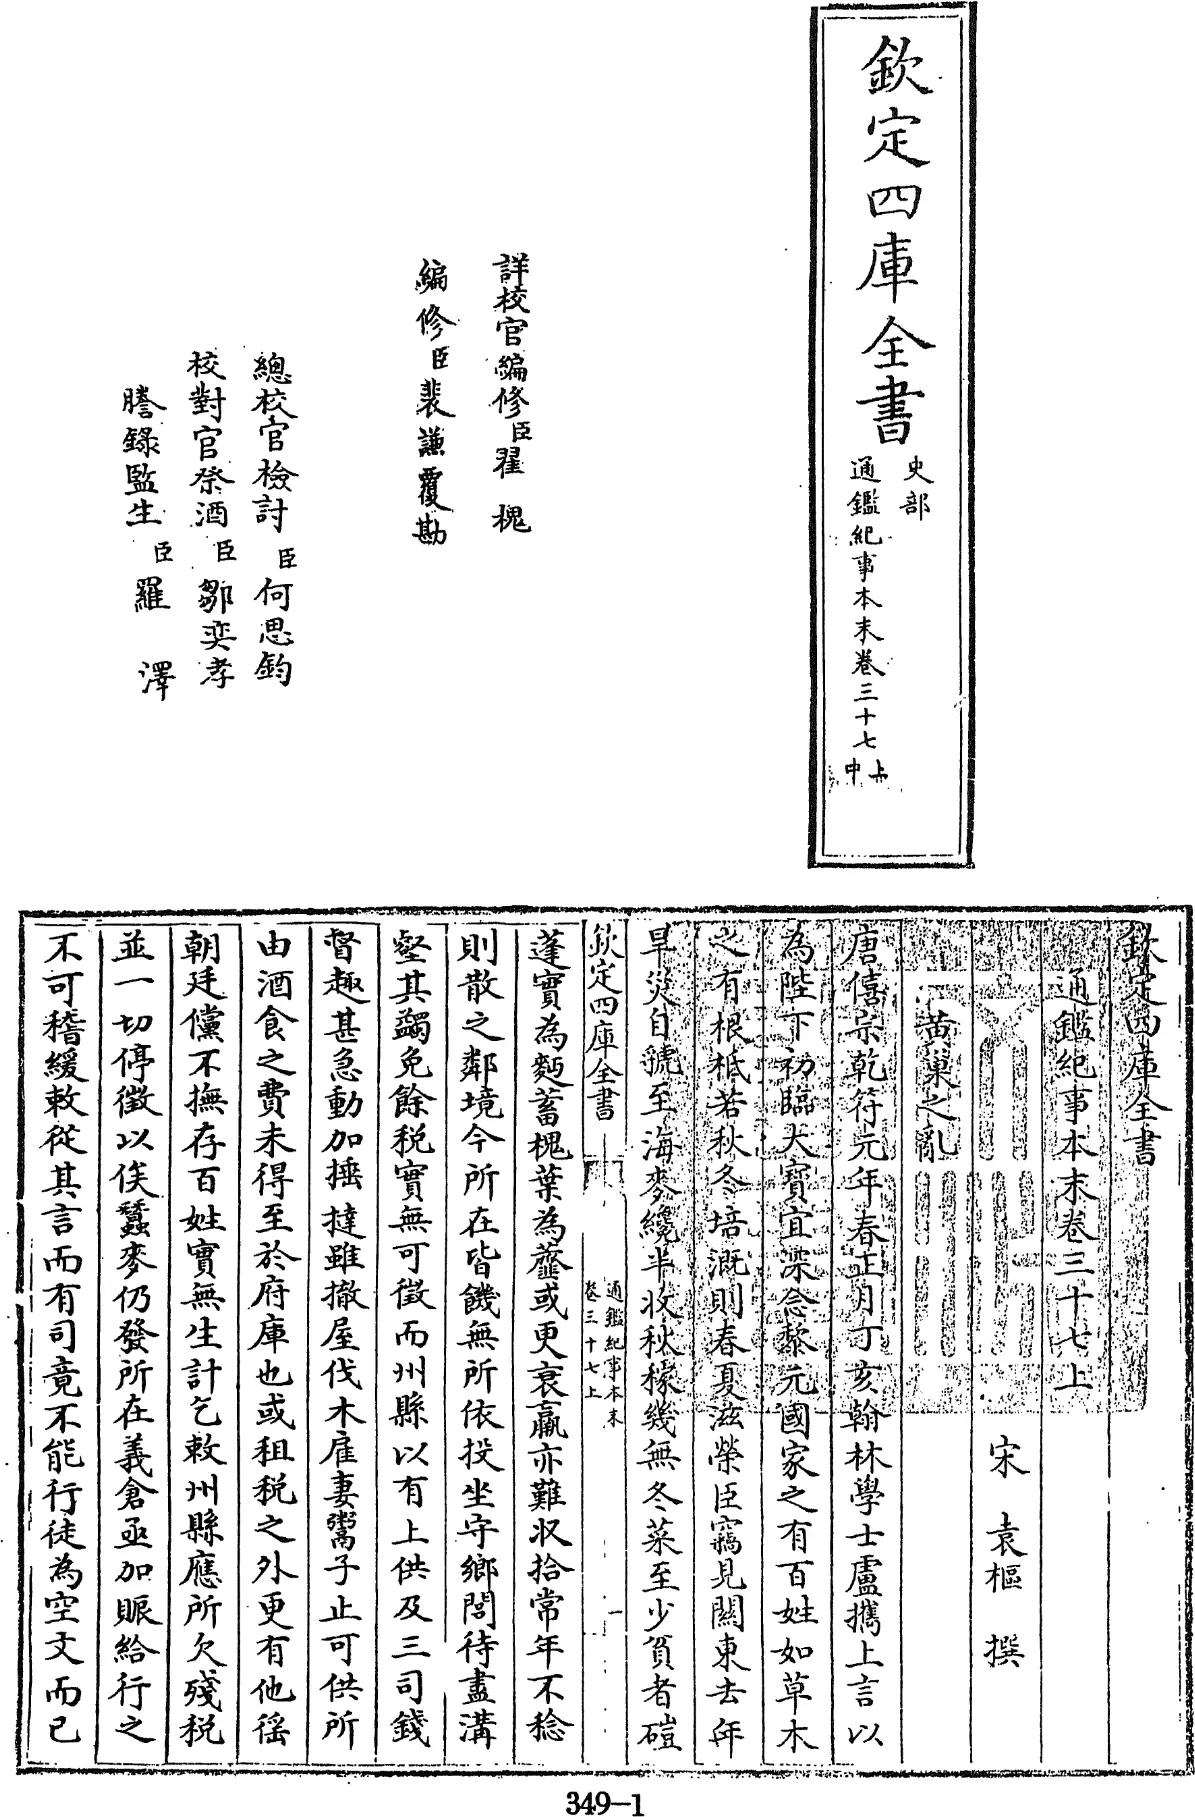 欽定四庫全書
史部
通鑑紀事本末卷三十七上
中
詳校官編修臣翟槐
編修臣裴謙覆勘
總校官檢討臣何思鈞
校對官祭酒臣鄒奕孝
謄錄監生臣羅澤
欽定四庫全書
通鑑紀事本末卷三十七上
宋 袁樞 撰
黄巢之亂
唐僖宗乾符元年春正月丁亥翰林學士盧攜上言以
為陛下初臨大寶宜深念黎元國家之有百姓如草木
之有根柢若秋冬培溉則春夏滋榮臣竊見關東去年
旱災自虢至海麥纔半收秋稼幾無冬菜至少貧者磑
欽定四庫全書
通鑑紀事本末
卷三十七上
一
蓬實為麪蓄槐葉為虀或更衰羸亦難収拾常年不稔
則散之鄰境今所在皆饑無所依投坐守鄉閭待盡溝
壑其蠲免餘税實無可徵而州縣以有上供及三司錢
督趣甚急動加捶撻雖撤屋伐木雇妻鬻子止可供所
由酒食之費未得至於府庫也或租税之外更有他徭
朝廷儻不撫存百姓實無生計乞敕州縣應所欠殘税
並一切停徵以俟蠶麥仍發所在義倉亟加賑給行之
不可稽緩敕從其言而有司竟不能行徒為空文而已
349-1